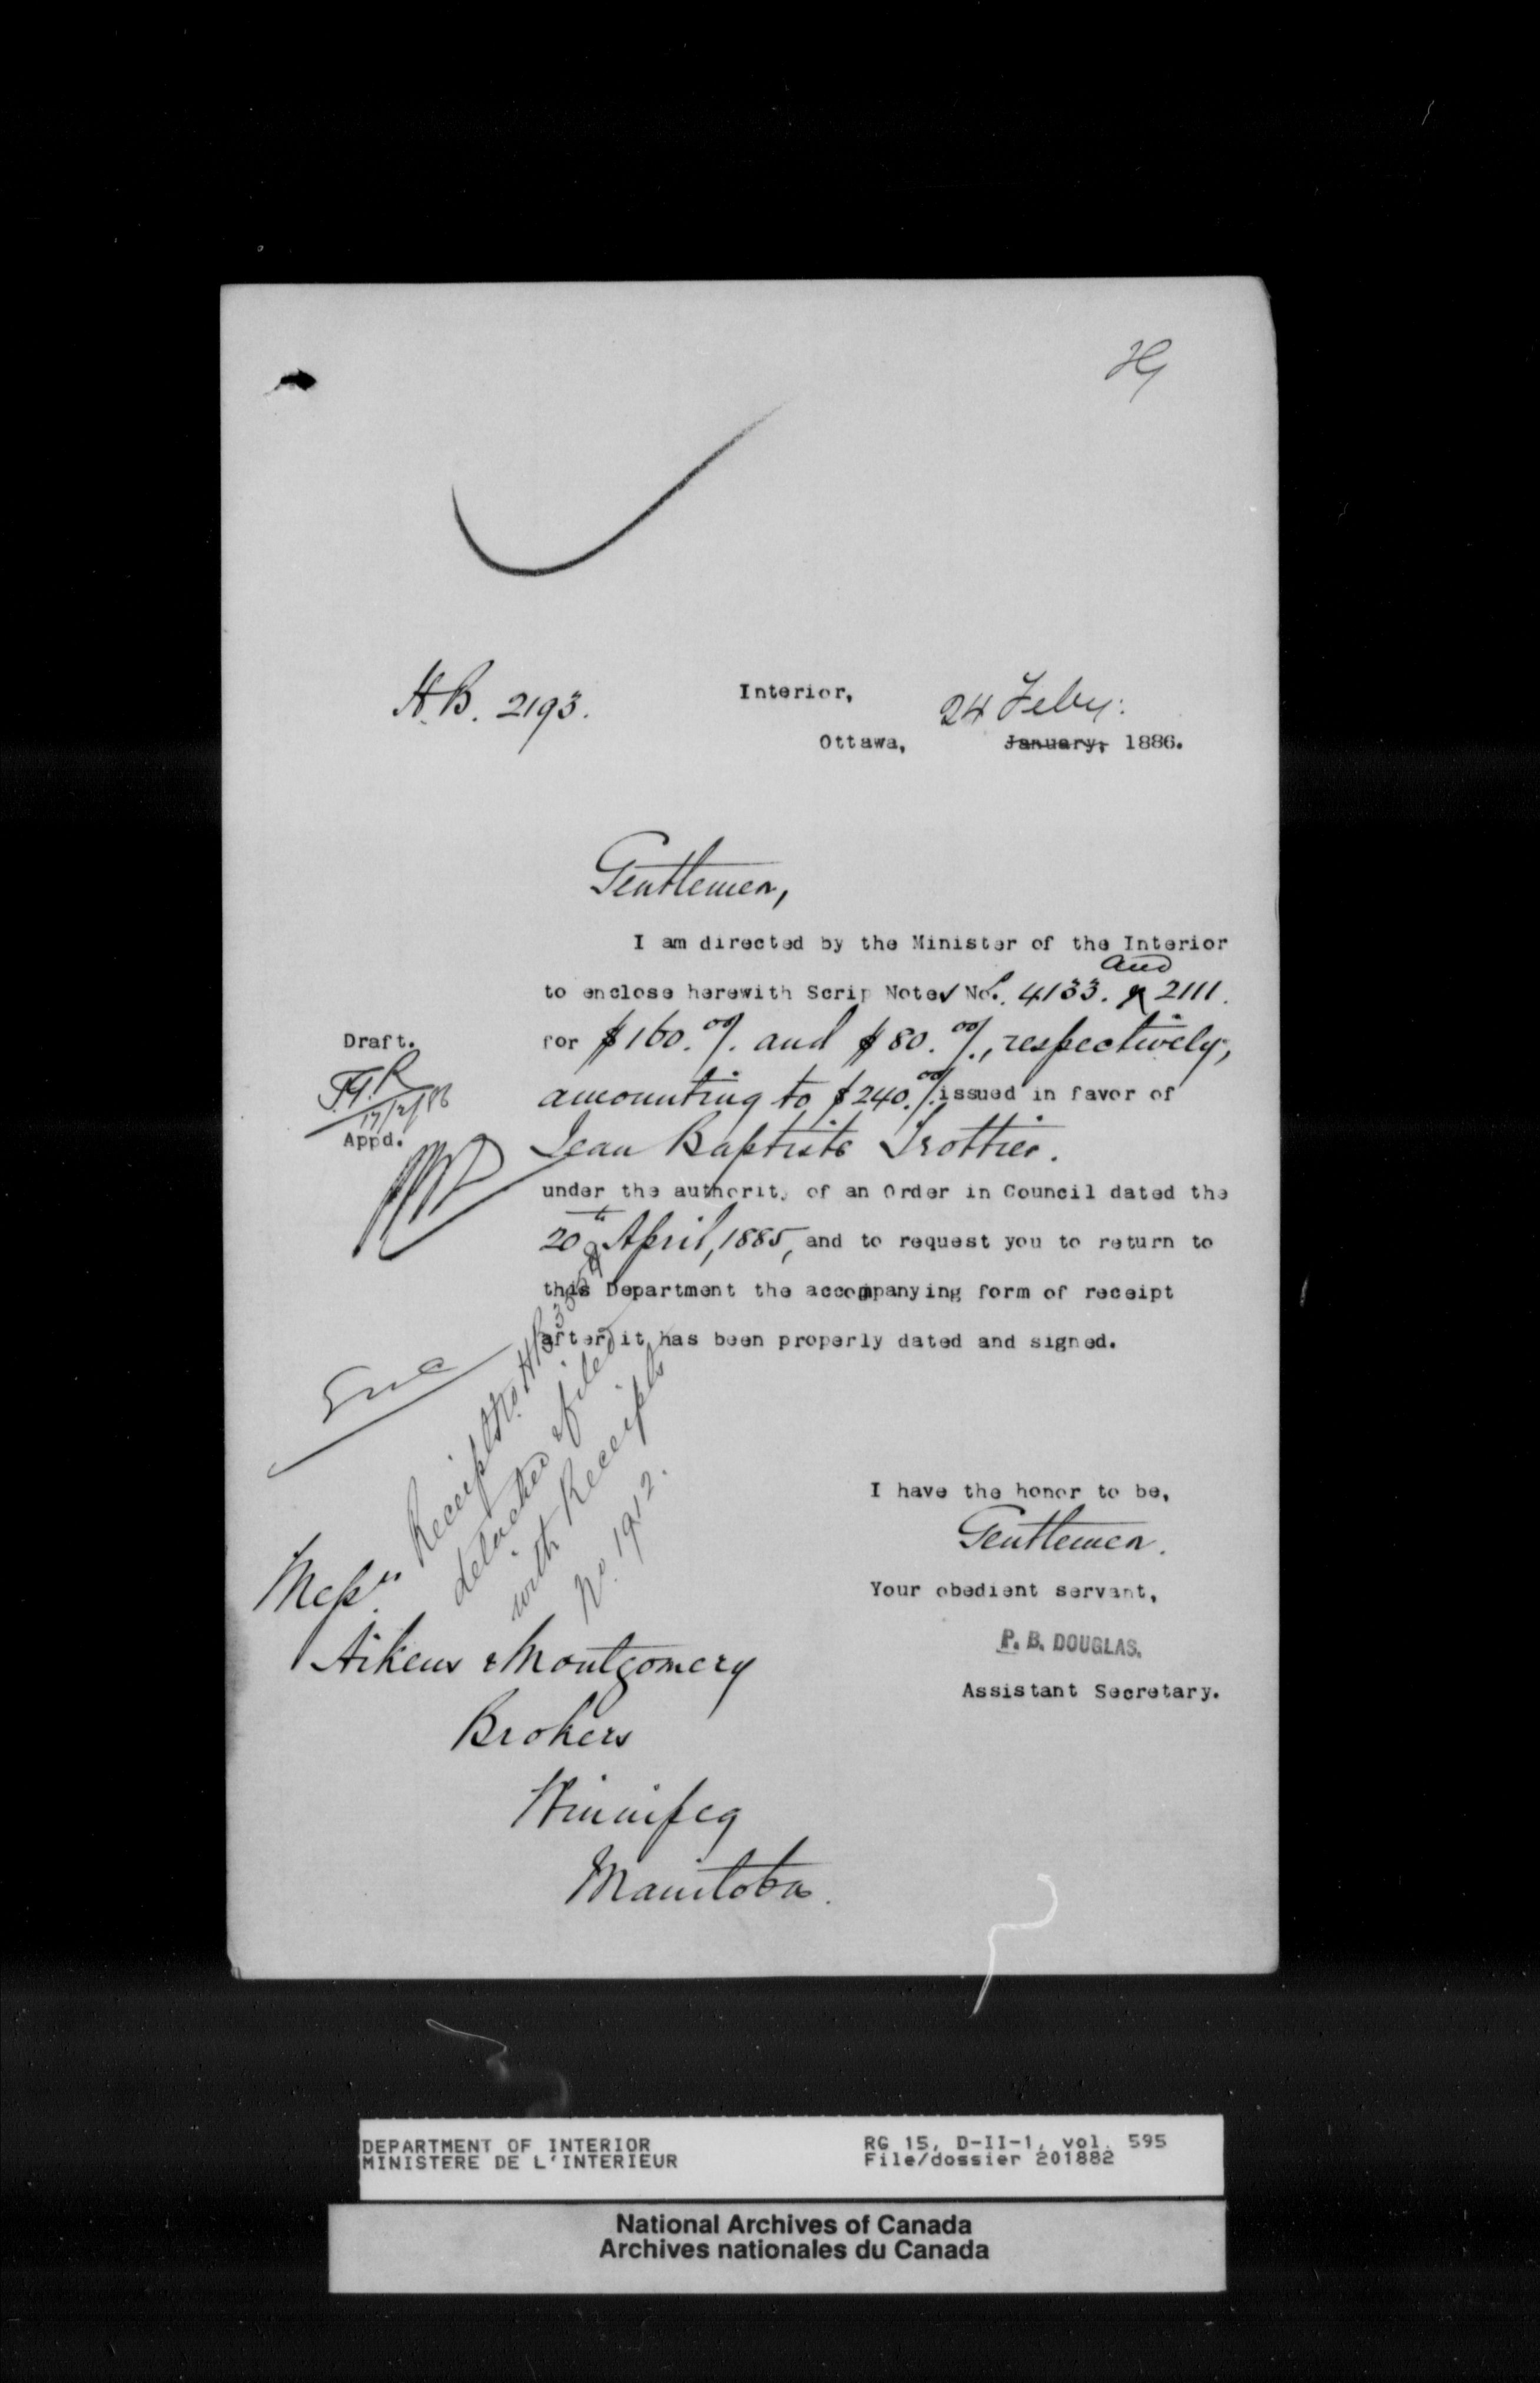 H.B. 2193.
Interior,
24 Feby.
Ottawa, January, 1886.
Gentlemen,
I am directed by the Minister of the Interior
and
to enclose herewith Scrip Notes Nos. 4133. & 2111.
for $160.00/. and $80.00/., respectively,
amounting to $240.00/. issued in favor of
Jean Baptiste Trottier.
under the authority of an Order in Council dated the
20th April, 1885, and to request you to return to
this Department the accompanying form of receipt
after it has been properly dated and signed.
Draft.
17/2/86
Appd.
Enc
Receipt No. HB
detached & filed
with Receipts
No. 1912.
I have the honor to be,
Gentlemen.
Your obedient servant,
P. B. DOUGLAS.
Assistant Secretary.
Messrs.
Aikens & Montgomery
Brokers
Winnipeg
Manitoba.
DEPARTMENT OF INTERIOR
MINISTERE DE L'INTERIEUR
RG 15, D-II-1, vol. 595
File/dossier 201882
National Archives of Canada
Archives nationales du Canada